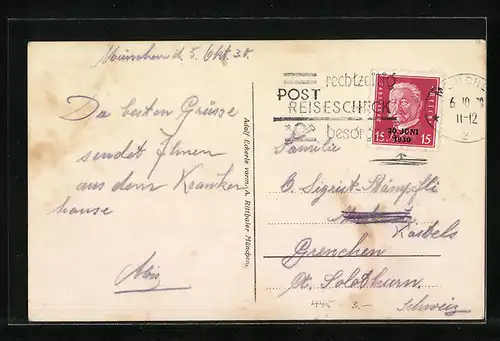 München d. 5. Okt. 30.
Die besten Grüsse
sendet Ihnen
aus dem Kranken
hause
Adolf Eckerle vorm. A. Ritthaler München.
rechtzeitig
POST
REISESCHECK
besor
30. JUNI
1930
15
15
6.10.30
11-12
2
Familie
C. Sigrist-Stämpfli
Kastels
Grenchen
Kt. Solothurn.
445 3.-
Schweiz